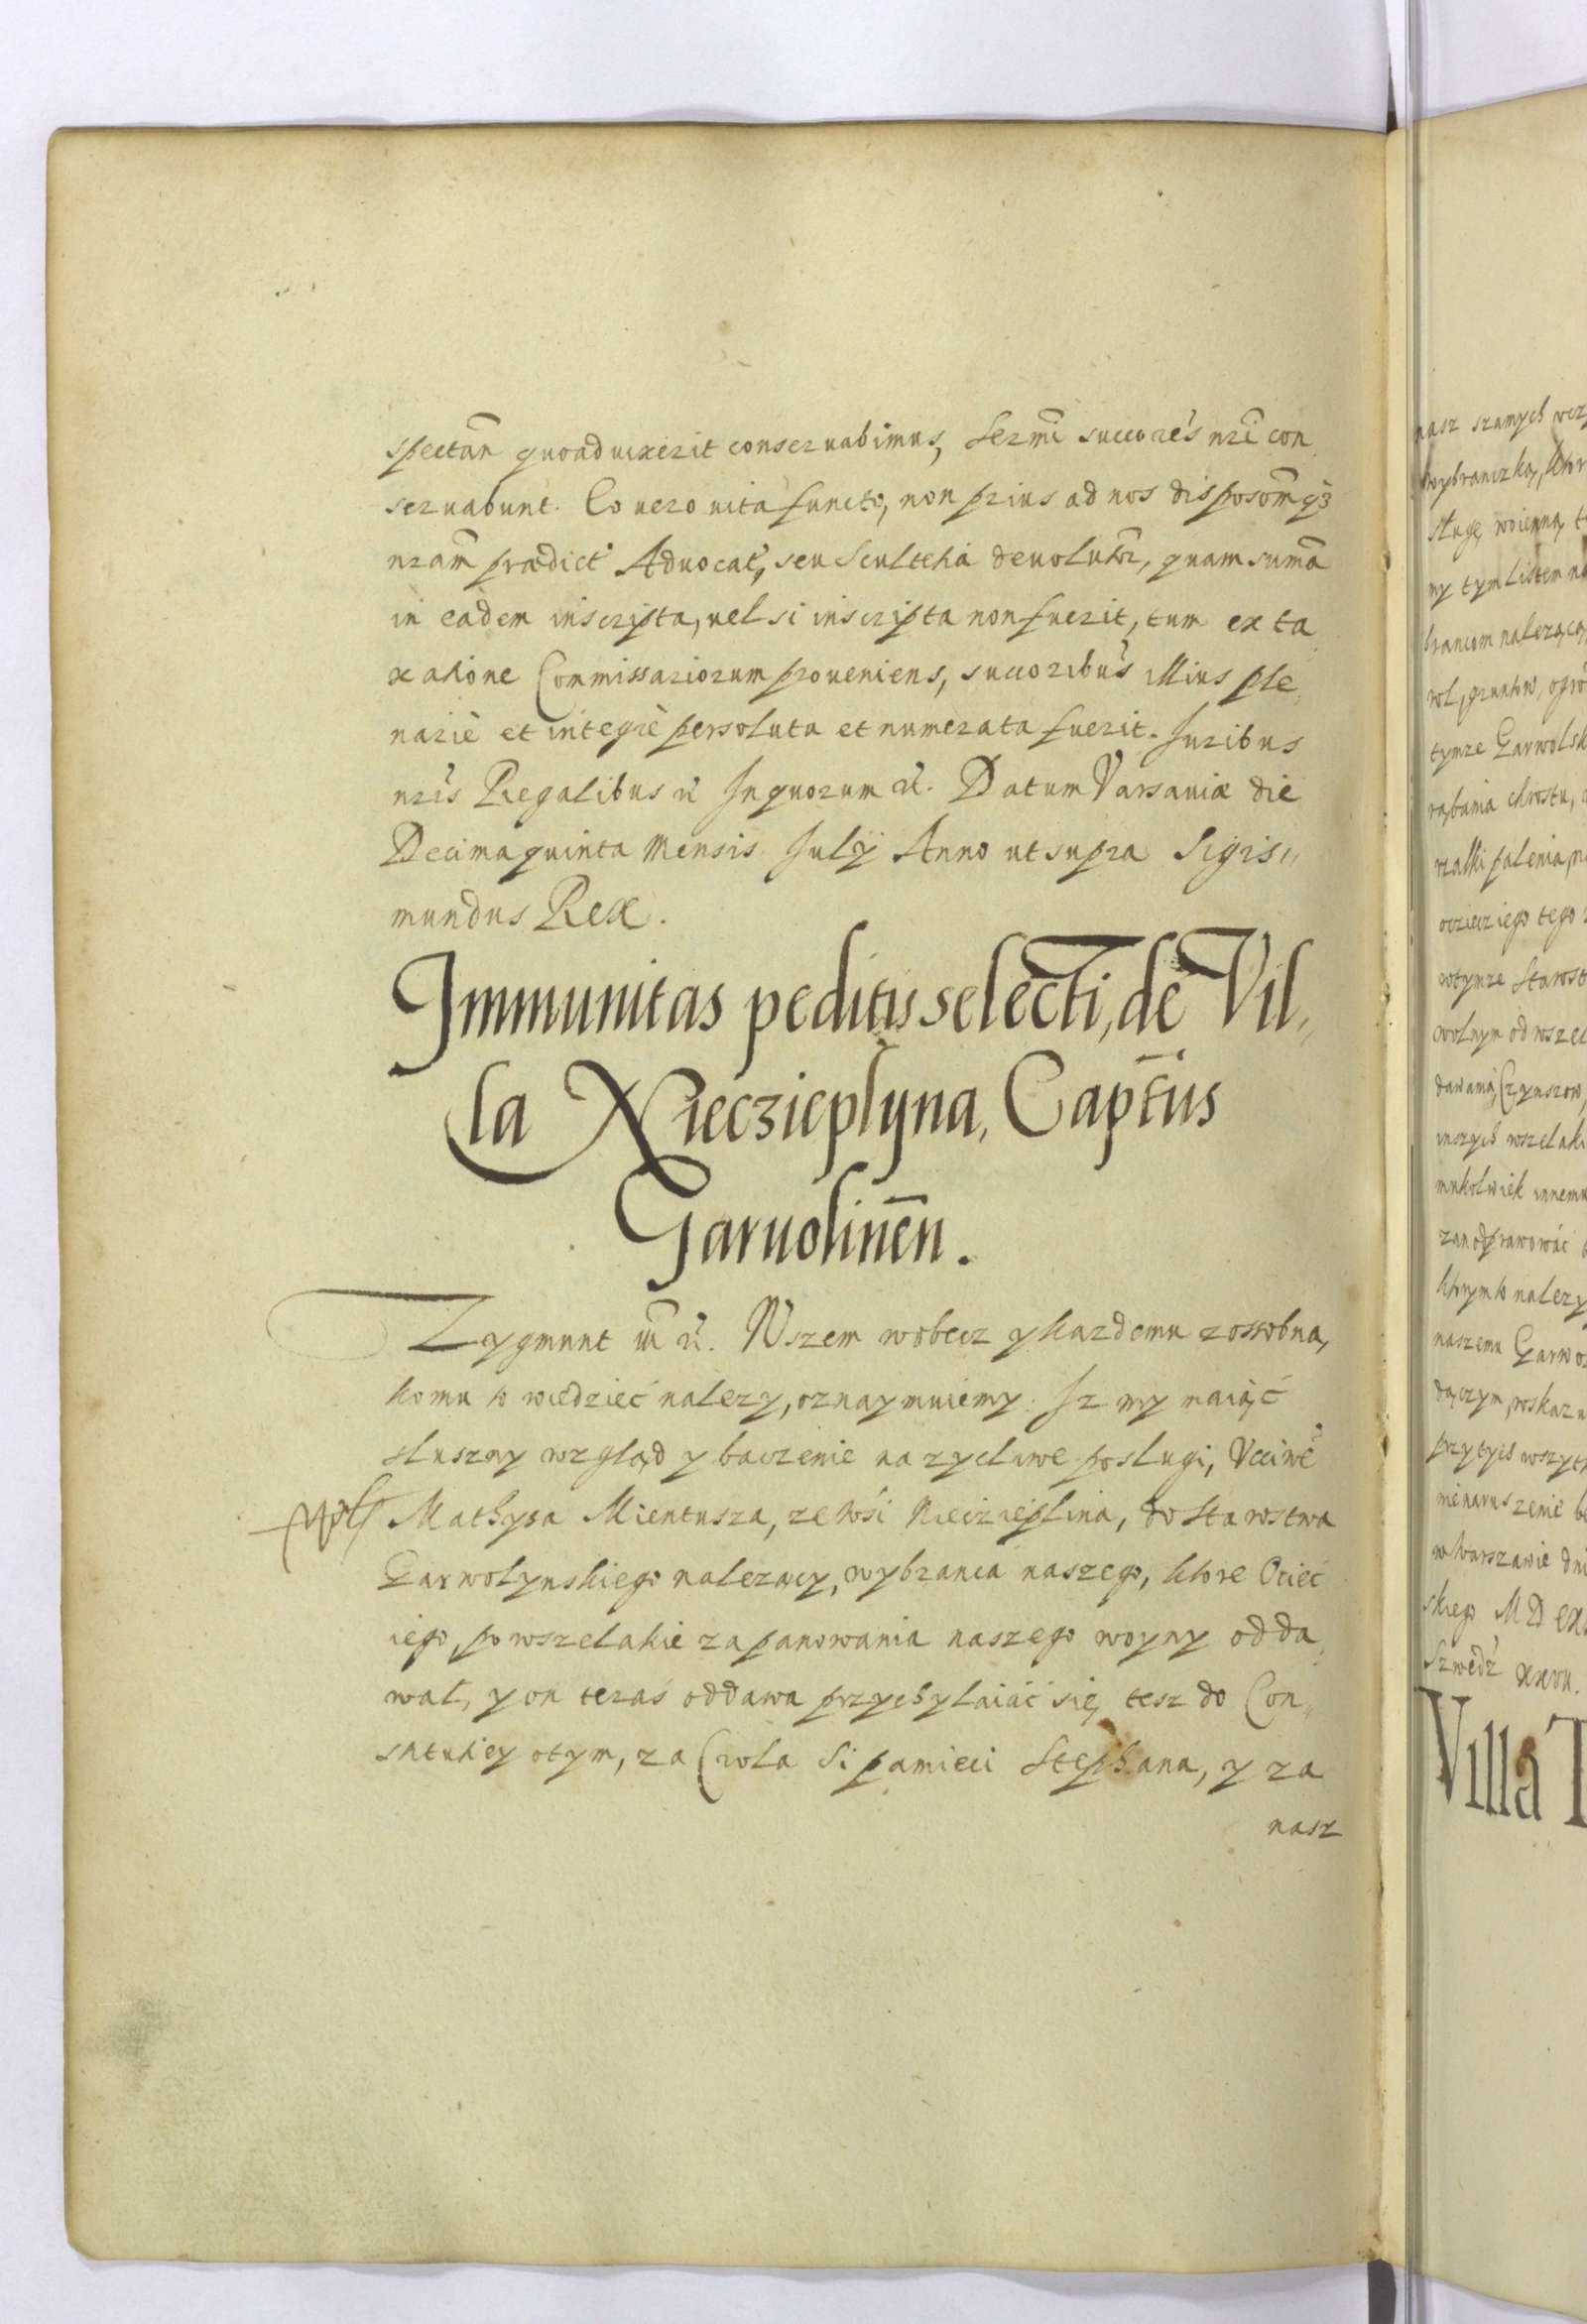 spectañ quoad uixerit conseruabimus, Sermi succores nri con
seruabunt. Eo uero uita functo, non prius ad nos disposom̃q3
nram prædict Aduocat, seu Scultetia deuoluetr, quam suma
in eadem inscripta, uel si inscripta non fuerit, tum ex ta
xatione Commissariorum proueniens, succoribus illius ple
nariè et integrè persoluta et numerata fuerit. Juribus
nris Regalibus r̃ Inquorum r̃. Datum Varsauiæ die
Decimaquinta Mensis Julÿ Anno ut supra Sigis,,
mundus Rex.
Immunitas peditis selecti, de Vil,,
la Nieczieplyna, Captus
Garuolinen̄.
Zygmunt iii r̃. Wszem wobecz y kazdemu zossobna,
komu to wiedzieć nalezy, oznaymuiemy. Iz my maiąć
słuszny wzgląd y baczenie na zycliwe posługi, Vcciwe
Mathysa Mientusza, ze wsi Niecziepłina, do Starostwa
Garwolynskiego nalezący, wybranca naszego, ktore Ociec
iego, po wszelakie za panowania naszego woyny odda,
wał, y on teraś oddawa przychylaiąć się tesz do Con,,
stitutiey otym, za Crola S͡i pamieci Stephana, y za
nasz
nasz szamych wcz
wybranczka, ktor
sługę woienną t
my tym Listem na
brancom nalezącą
rol, gruntow, ogro
tymze Garwolsk
rąbania chrostu,
rzałki palenia, p
oczieciego tego
wtymze Starost
wolnym od wszel
dawania, Czynszow,
inszych wszelaki
mukolwiek innemu
zanodprawować
ktorym to nalezy
naszemu Garwo
dączym, wskazu
przytych wszyt
nienaruszenie be
w Warszawie dni
skiego MD ex
Szwedz xxvii.
Villa T